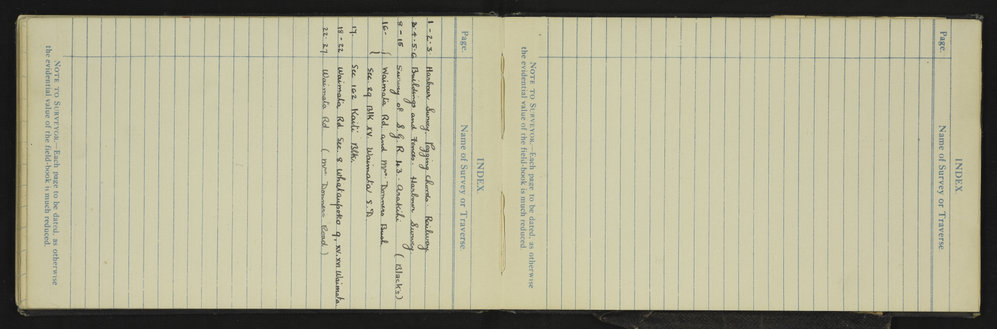 INDEX.
Page. Name of Survey or Traverse.
1-2-3. Harbour Survey. Pegging Chords. Railway
3.4.5.6 Buildings and Fences. Harbour Survey
8-15 Survey of S.G.R 43. Arakihi (Blacks)
16. { Waimata Rd and Mrs Donners Bush
{ Sec 29 Blk XV. Waimata S.D
17. Sec 162 Kaiti Blk.
18-22 Waimata Rd Sec. 8 Whataupoko 9. XV. XVI Waimata.
22.27. Waimata Rd. (Mrs Donners Road.)
NOTE TO SURVEYOR.—Each page to be dated, as otherwise
the evidential value of the field-book is much reduced.
INDEX.
Page. Name of Survey or Traverse.
NOTE TO SURVEYOR.—Each page to be dated, as otherwise
the evidential value of the field-book is much reduced.